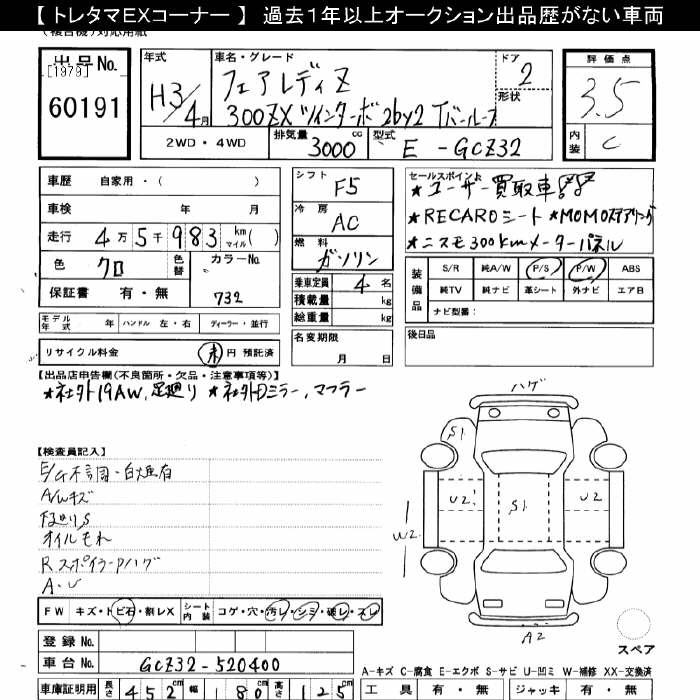 【 トレタマEXコーナー 】 過去1年以上オークション出品歴がない車両
(複合機)対応用紙
出品No.
[1979]
60191
年式
H3/4月
車名・グレード
フェアレディZ
300ZX ツインターボ 2by2 Tバールーフ
ドア
2
形状
評価点
3.5
内装
C
2WD・4WD
排気量
3000 cc
型式
E - GCZ32
車歴 自家用・( )
車検 年 月
走行 4万5千983 km マイル( )
色 クロ
色替
カラーNo.
732
保証書 有・無
モデル年式 年 ハンドル 左・右 ディーラー・並行
リサイクル料金 未 円 預託済
シフト
F5
冷房
AC
燃料
ガソリン
乗車定員 4 名
積載量 kg
総重量 kg
名変期限
月 日
セールスポイント
★ユーザー買取車!!
★RECAROシート ★MOMOステアリング
★ニスモ300kmメーターパネル
装備品
S/R 純A/W P/S P/W ABS
純TV 純ナビ 革シート 外ナビ エアB
ナビ型番:
後日品
【出品店申告欄(不良箇所・欠品・注意事項等)】
★社外19AW,足廻り ★社外Dミラー,マフラー
【検査員記入】
E/G不調・白煙有
A/Wキズ
下廻りS
オイルモレ
RスポイラーPハゲ
FW キズ・トビ石・割レX
シート内装 コゲ・穴・汚レ・シミ・破レ・スレ
登録No.
車台No. GCZ32-520400
車庫証明用 長さ 452cm 幅 180cm 高さ 125cm
ハゲ
S1
U2
S1
U2
W2
A2
スペア
A-キズ C-腐食 E-エクボ S-サビ U-凹ミ W-補修 XX-交換済
工具 有・無 ジャッキ 有・無